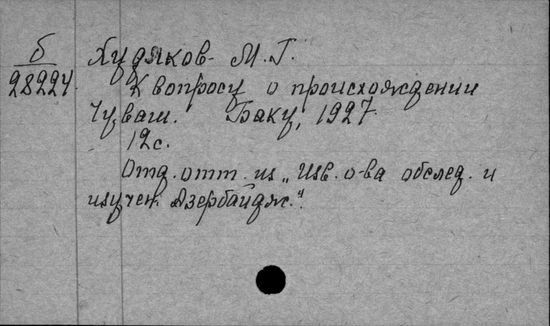 б
28224
Худяков М.Г.
К вопросу о происхождении
Чуваш. Баку, 1927
12с.
Отд. отт. из „Изв. о-ва обслед. и
изучен. Азербайдж."